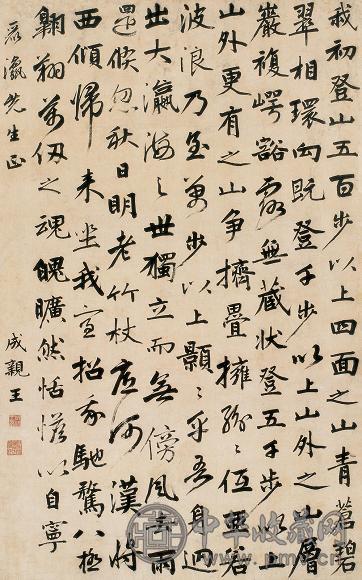 我初登山五百步以上四面之山青蒼碧
翠相環向既登千步以上山外之山層
巖複崿谿露無藏狀登五千步以上
山外更有之山爭擠疊擁若
波浪乃至萬步以上顥顥乎吾身迥
出大瀛海之世獨立而無傍風雨
倏忽秋日明老竹杖底河漢將
西傾歸來坐我室招我馳驁八極
翱翔萬仞之魂魄曠然恬憺以自寧
瀛先生正
成親王
中華收藏网